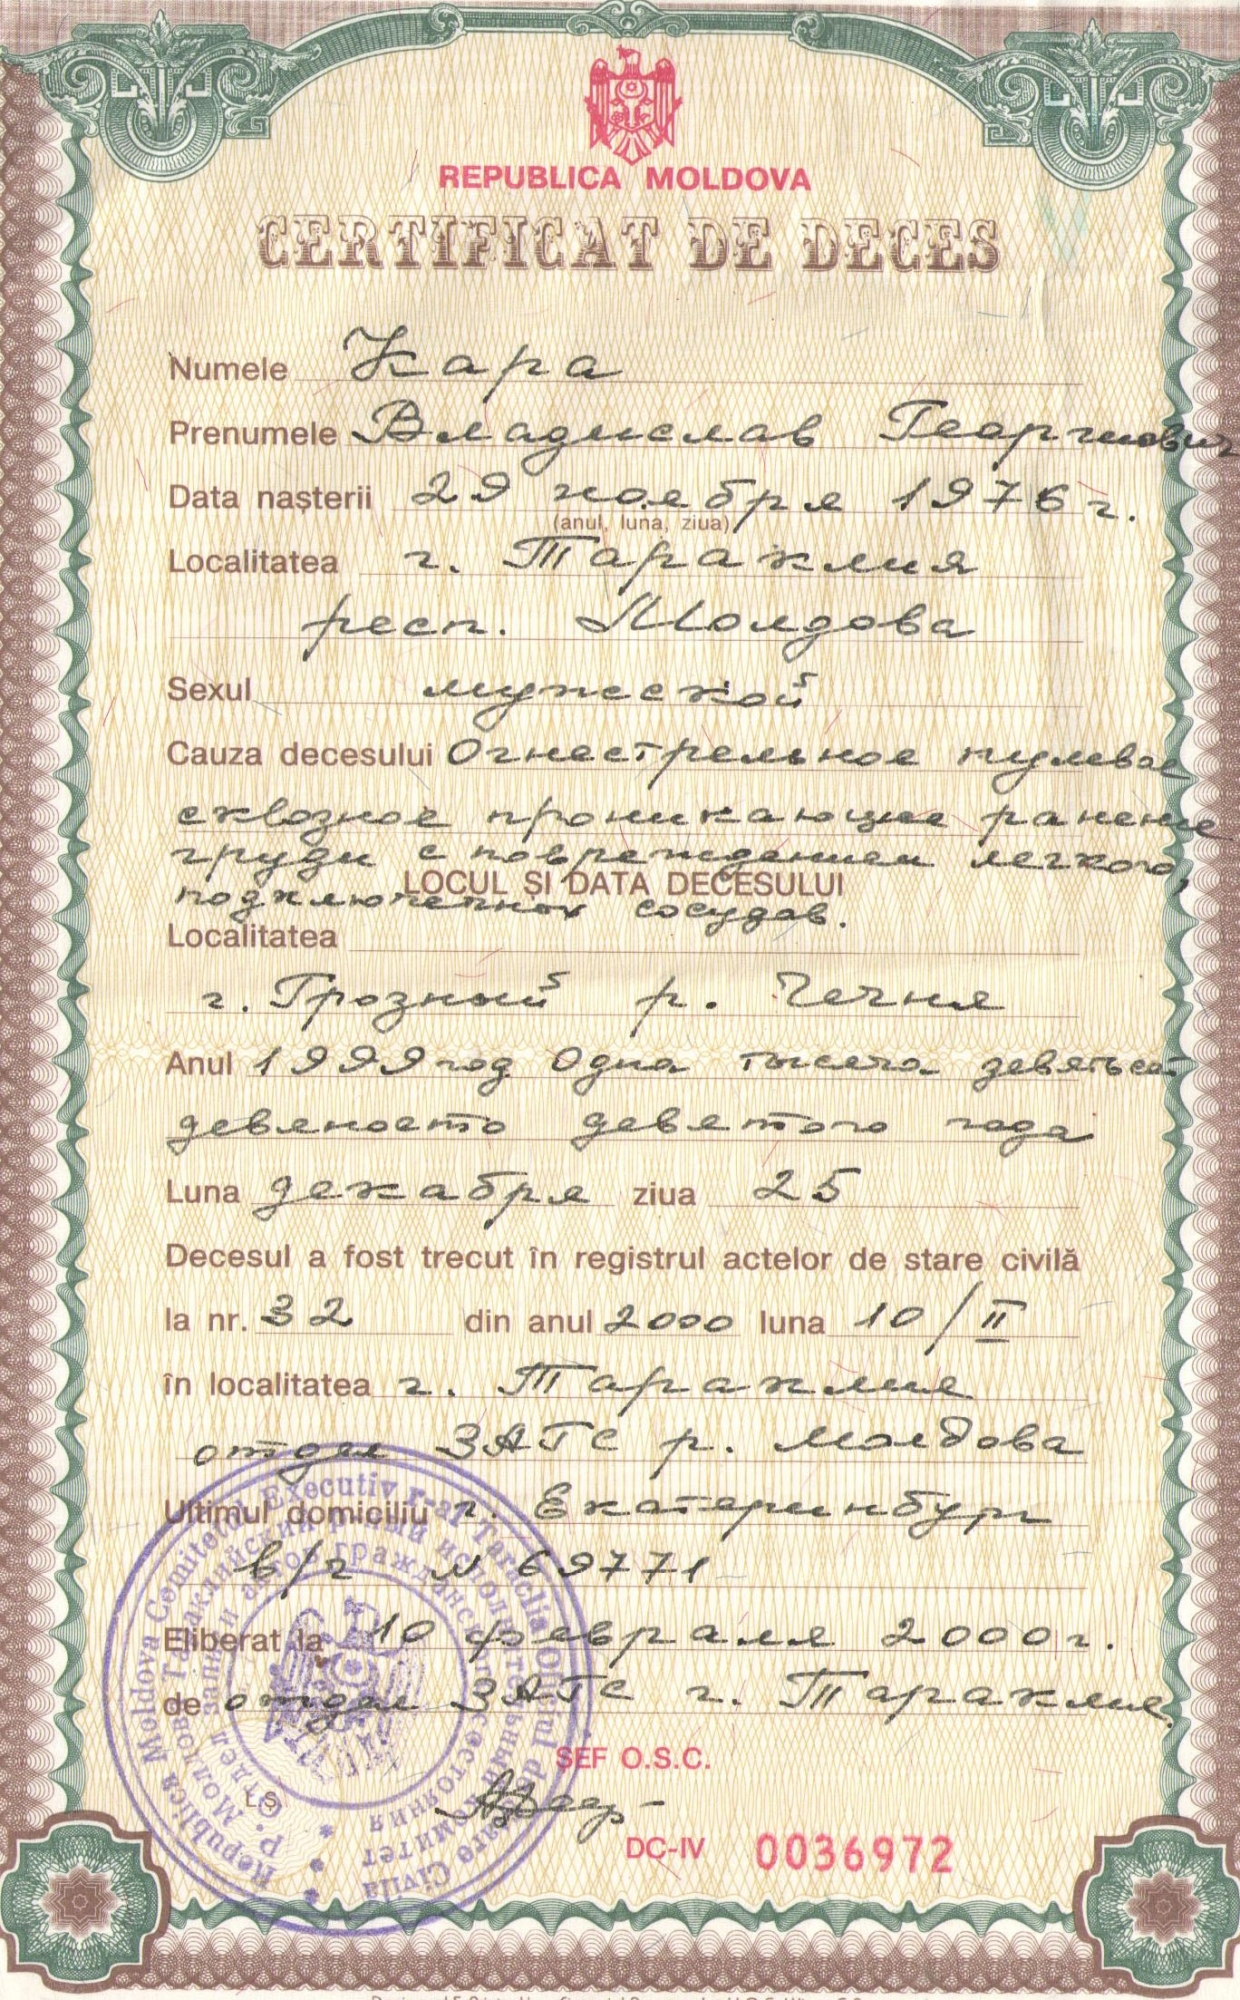 REPUBLICA MOLDOVA
CERTIFICAT DE DECES
Numele Кара
Prenumele Владислав Георгиевич
Data nașterii 29 ноября 1976 г.
(anul, luna, ziua)
Localitatea г. Тараклия
респ. Молдова
Sexul мужской
Cauza decesului Огнестрельное пулевое
сквозное проникающее ранение
груди с повреждением легкого,
LOCUL ȘI DATA DECESULUI
подключичных сосудов.
Localitatea
г. Грозный р. Чечня
Anul 1999 год Одна тысяча девятьсот
девяносто девятого года
Luna декабря ziua 25
Decesul a fost trecut în registrul actelor de stare civilă
la nr. 32 din anul 2000 luna 10/II
în localitatea г. Тараклия
отдел ЗАГС р. Молдова
Ultimul domiciliu г. Екатеринбург
в/ч N 69771
Eliberat la 10 февраля 2000г.
de отдел ЗАГС г. Тараклия
ȘEF O.S.C.
L.Ș.
DC-IV 0036972
Republica Moldova Comitetul Executiv r-al Taraclia Oficiul de Stare Civilă
Р. Молдова Тараклийский р-ный исполнительный комитет
Отдел записи актов гражданского состояния